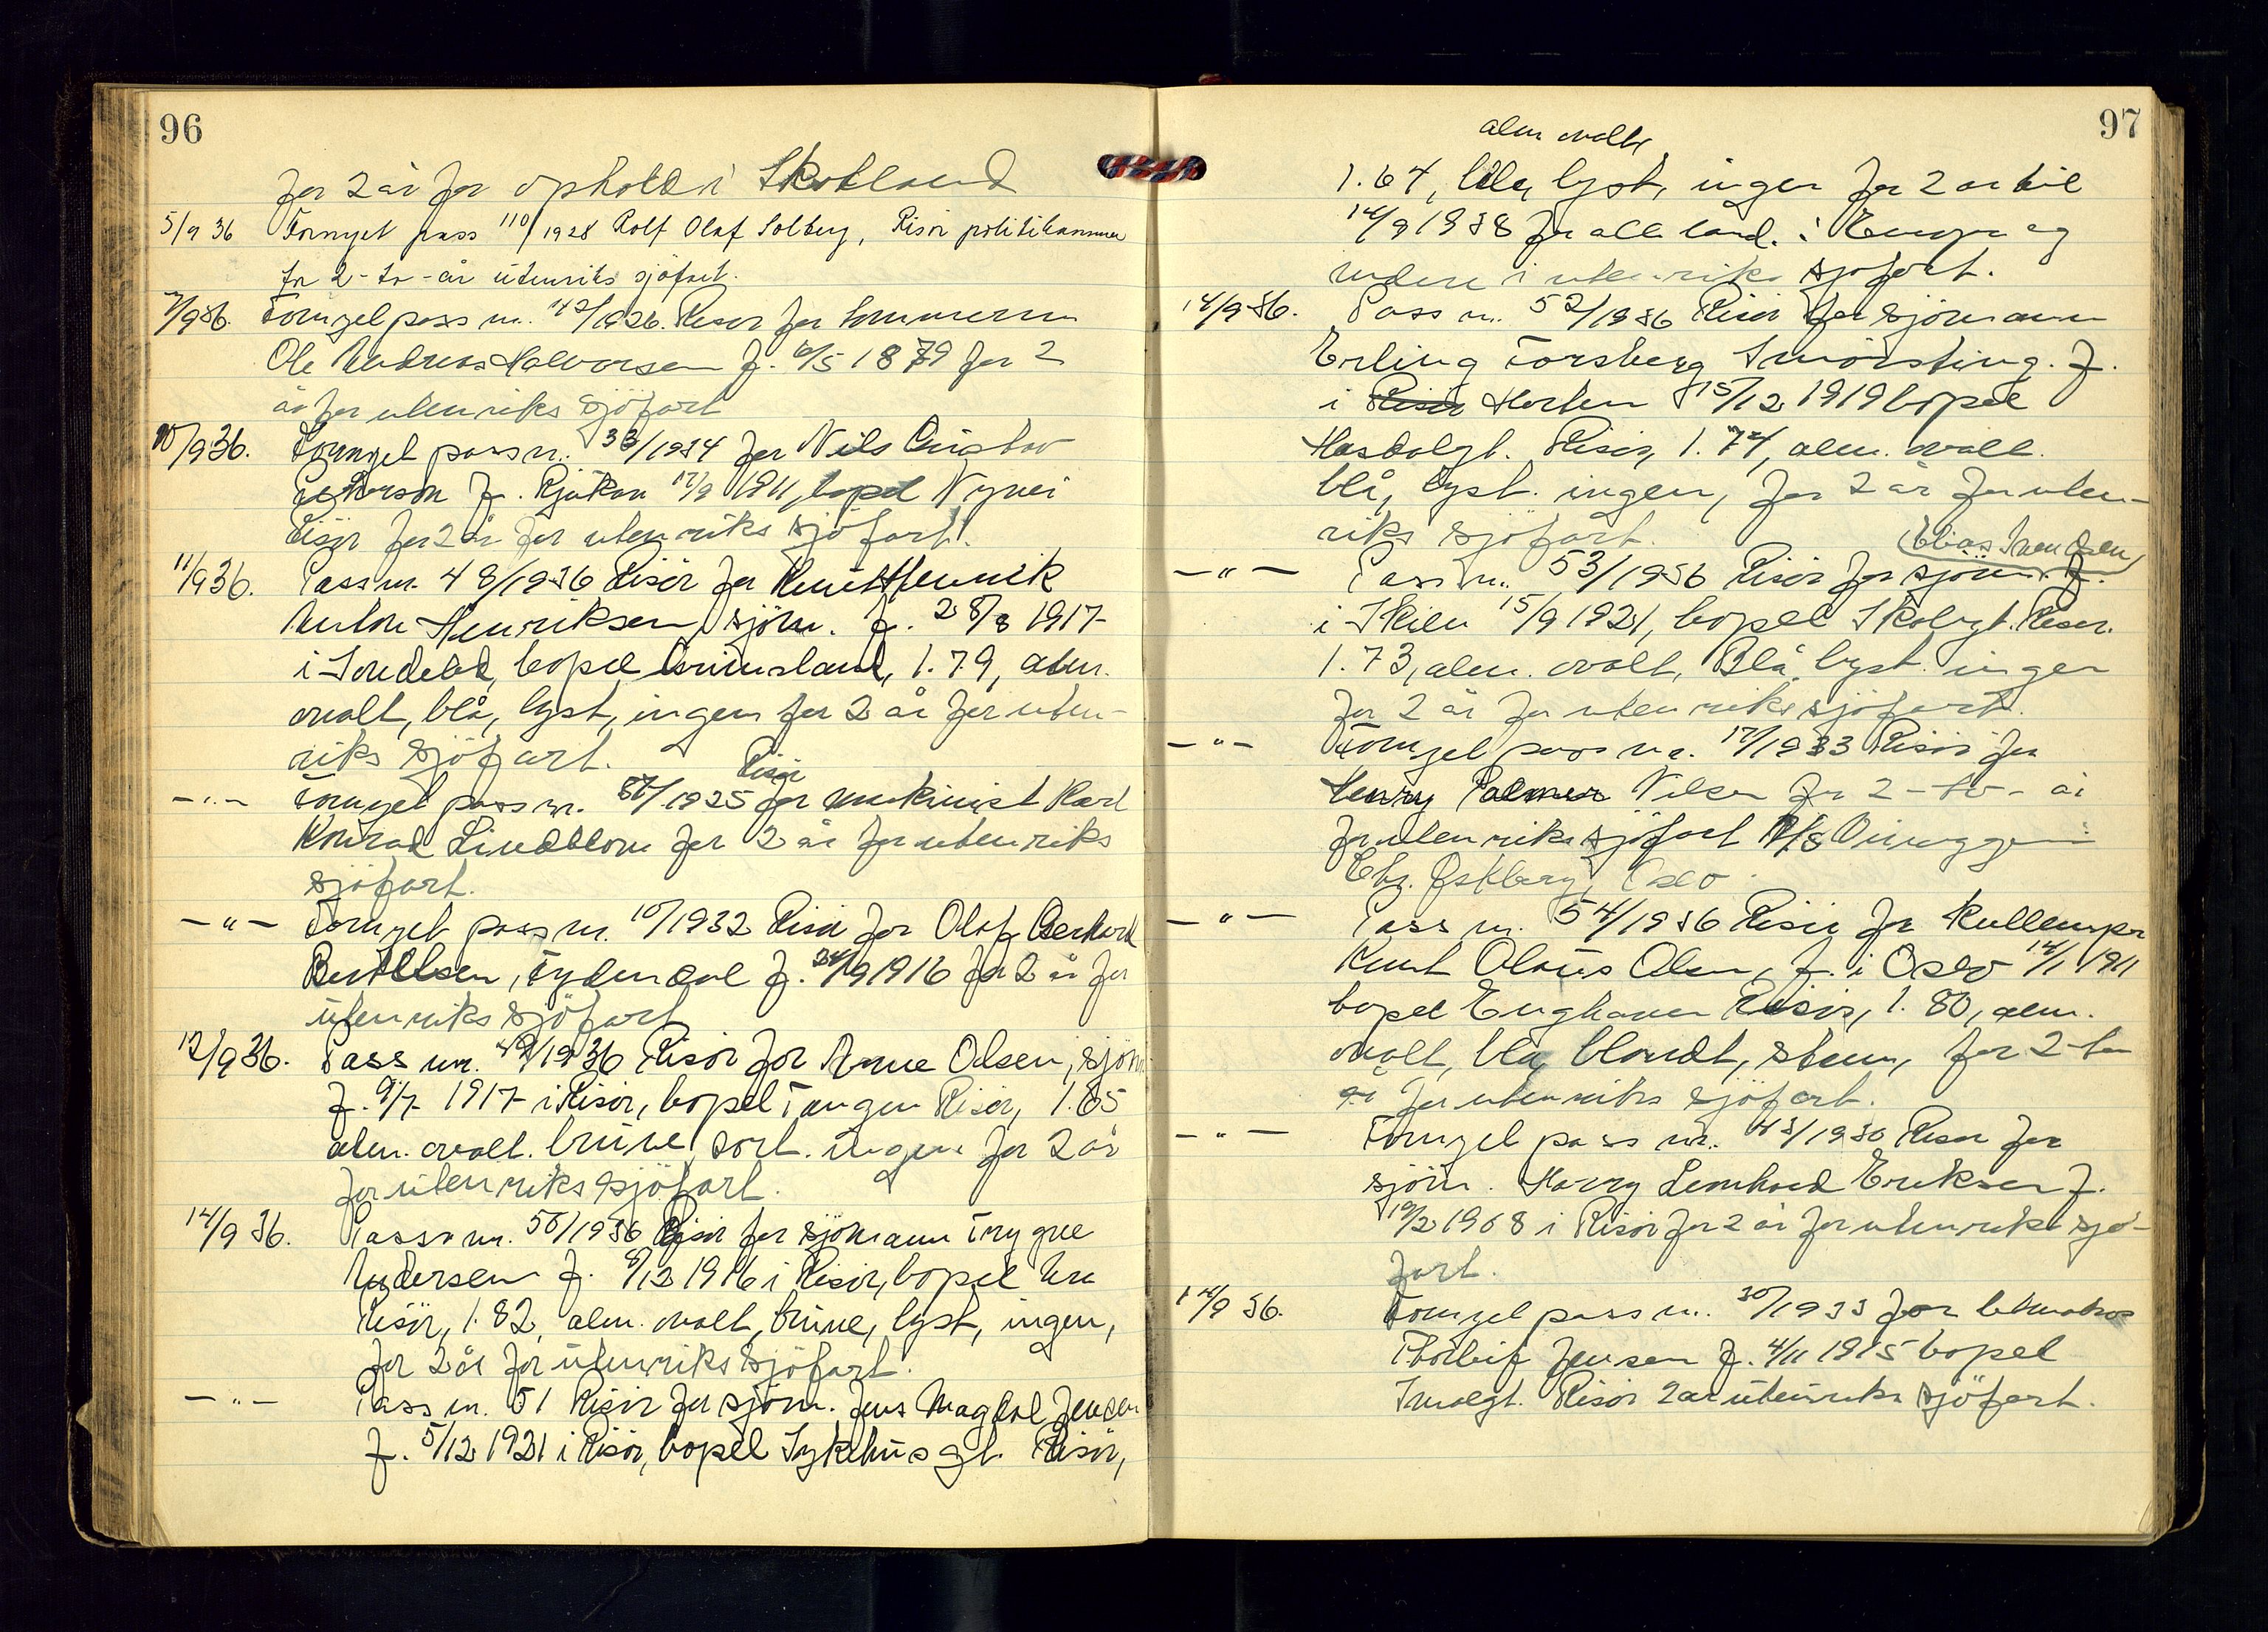 96
for 2 år for ophold i Skotland
5/9 36 Fornyet pass 110/1928 Rolf Olaf Solberg, Risör politikammer
for 2-to-år utenriks sjöfart.
7/9 36. Fornyet pass nr. 42/1926. Risör for
Ole Andreas Halvorsen f. 6/5 1879 for 2
år for utenriks sjöfart
10/9 36. Fornyet pass nr. 33/1934 for Nils Gustav
f. Rjukan 17/9 1911, bopel
Risör for 2 år for utenriks sjöfart.
11/9 36. Pass nr. 48/1936 Risör for Knut Henrik
Anton Henriksen, sjöm. f. 28/8 1917
i Söndeled, bopel 1.79, alm.
ovalt, blå, lyst, ingen for 2 år for uten-
riks sjöfart.
Risör
— " — Fornyet pass nr. /1925 for maskinist Karl
Konrad Lindblom for 2 år for utenriks
sjöfart.
— " — Fornyet pass nr. 10/1932 Risör for Olof Gerhard
Bertilsen, f. 24/9 1916 for 2 år for
utenriks sjöfart
12/9 36. Pass nr. 49/1936 Risör for Arne Olsen, sjöm
f. 9/7 1917 i Risör, bopel Tangen Risör, 1.65
alm. ovalt. brune, sort. ingen for 2 år
for utenriks sjöfart.
14/9 36. Pass nr. 50/1936 Risör for sjömann Trygve
Andersen f. 8/12 1916 i Risör, bopel
Risör, 1.82, alm. ovalt, brune, lyst, ingen,
for 2 år for utenriks sjöfart.
— " — Pass nr. 51 Risör for sjöm. Jens Magdal Jensen
f. 5/12 1921 i Risör, bopel Sykehusgt. Risör,
97
alm ovalt
1.64, blå, lyst, ingen for 2 år til
14/9 1938 for alle land i Europa og
videre i utenriks sjöfart.
14/9-36. Pass nr. 52/1936 Risör for sjömann
Erling Torsberg Smörsting. f.
i Risör Horten 15/12 1919 bopel
Hasdalgt. Risör, 1.74, alm. ovalt.
blå, lyst. ingen, for 2 år for uten-
riks sjöfart.
— " — Pass nr. 53/1936 Risör for sjöm. f.
i Skien 15/9 1921, bopel Skolegt. Risör.
1.73, alm. ovalt, Blå, lyst. ingen
for 2 år for utenriks sjöfart.
— " — Fornyet pass nr. 17/1933 Risör for
Henry Palmer Nilsen for 2-to-år
for utenriks sjöfart
Chr. Östberg, Oslo
— " — Pass nr. 54/1936 Risör for
Knut Olaus Olsen, f. i Oslo 14/1 1911
bopel Enghaven Risör, 1.80, alm.
ovalt, blå, blondt, for 2-to
år for utenriks sjöfart.
— " — Fornyet pass nr. 43/1930 Risör for
sjöm. Harry Leonhard Eriksen f.
19/2 1908 i Risör for 2 år for utenriks sjö-
fart.
14/9 36. Fornyet pass nr. 30/1933 for
Thorleif Jensen f. 4/11 1915 bopel
Risör 2 år utenriks sjöfart.